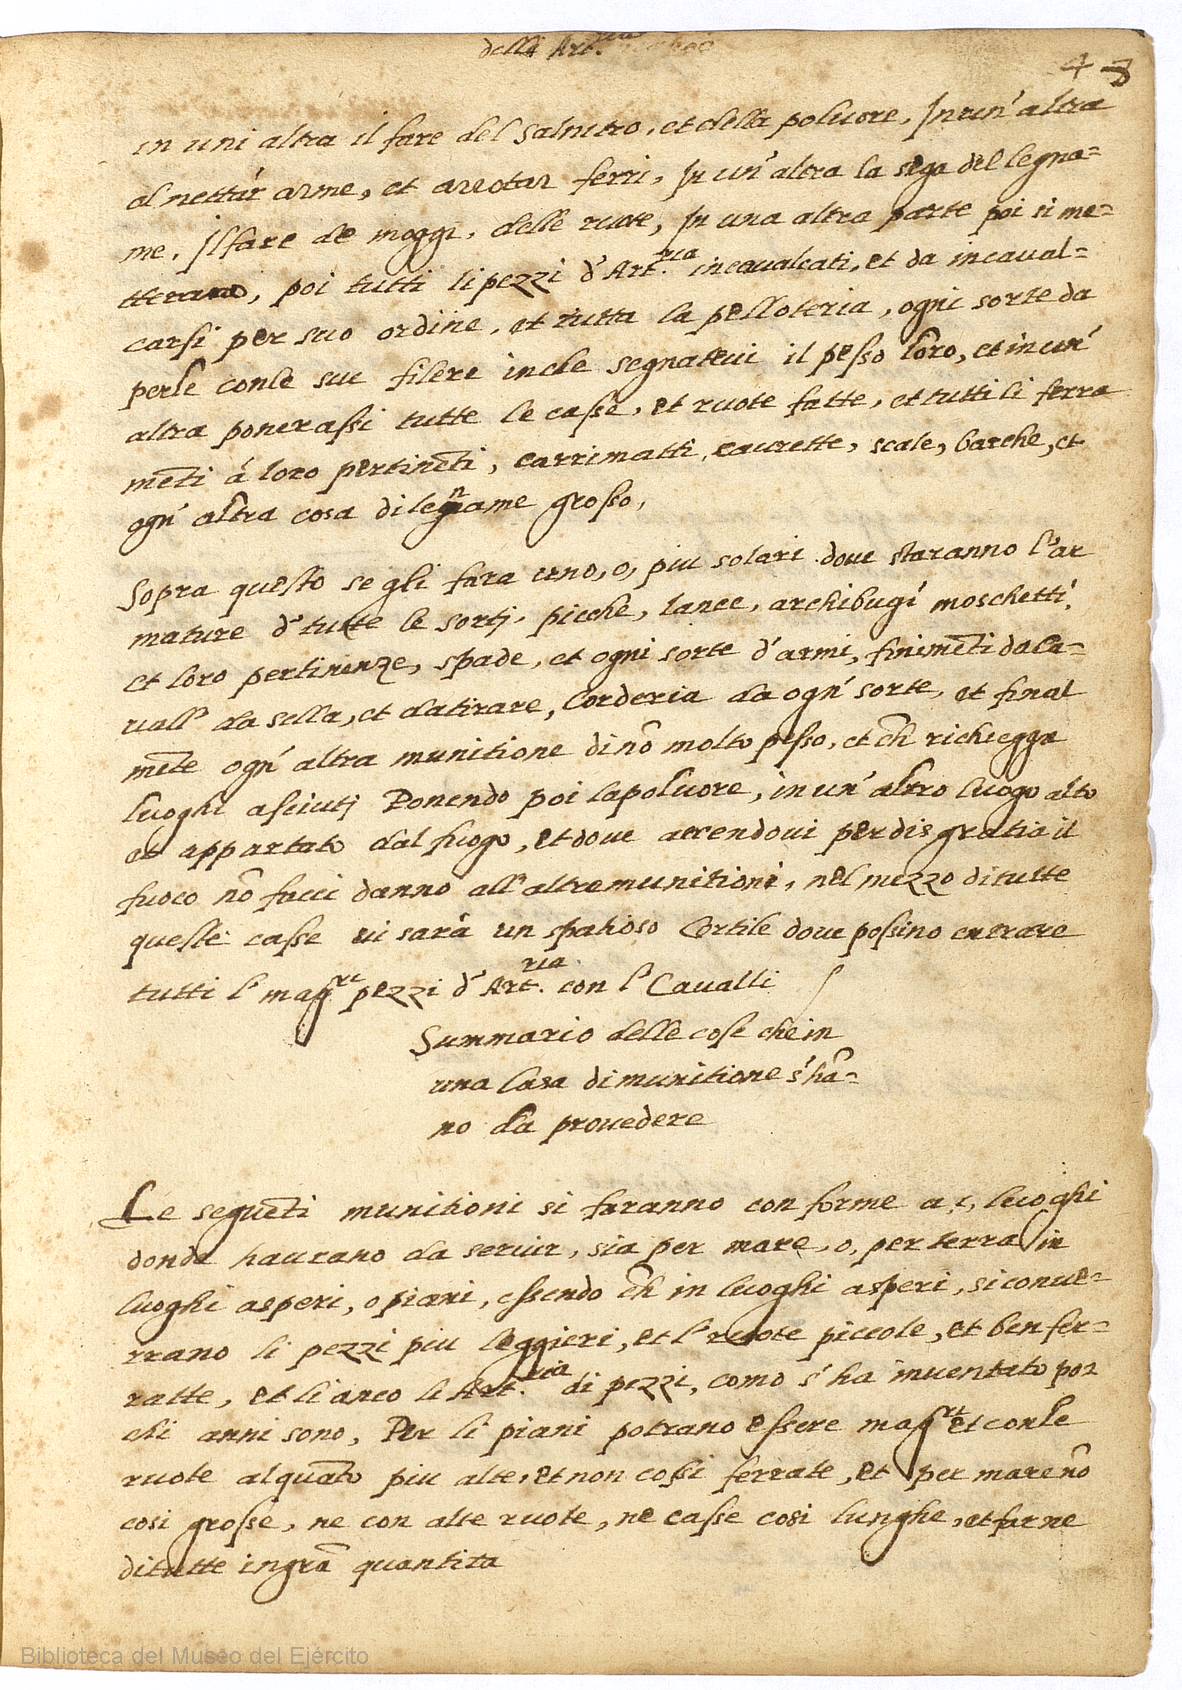 della Art.ria
43
in uni altra il fare del salnitro, et della poluore, In un' altra
al nettar arme, et arrotar ferri, In un' altra la sega del legna=
me, Il fare de moggi, delle ruote, In una altra parte poi si me=
tterano, poi tutti li pezzi d' Art.ria incaualcati, et da incaual=
carsi per suo ordine, et tutta la pelloteria, ogni sorte da
perle conle sue filere incle segnateui il pesso loro, et in un'
altra ponerassi tutte le casse, et ruote fatte, et tutti li ferra
mēti á loro pertinēti, carrimatti, caurette, scale, barche, et
ogn' altra cosa di legname grosso,
Sopra questo se gli fara uno, o, piu solari doue staranno l'ar
mature d' tutte le sortj, picche, lance, archibugi moschetti,
et loro pertinenze, spade, et ogni sorte d'armi, finimēti da ca=
uall' da sella, et datirare, Corderia da ogn' sorte, et final
mēte ogn' altra munitione di nō molto pesso, et ch̄ richiegga
luoghi asciutj Ponendo poi la poluore, in un' altro luogo alto
et appartato dal fuogo, et doue accendoui per disgratia il
fuoco nō facci danno all' altre munitioni, nel mezzo di tutte
queste casse ui sarà un spatioso Cortile doue possino entrare
tutti l' mag.ri pezzi d' Art.ria con l' Caualli
Summario delle cose che in
una Casa di munitione s'hā=
no da prouedere
Le seguēti munitioni si faranno conforme a, i, luoghi
donde haurano da seruir, sia per mare, o, per terra in
luoghi asperi, o piani, essendo ch̄ in luoghi asperi, si conue=
rrano li pezzi piu leggieri, et l' ruote piccole, et ben fer=
ratte, et li anco le Art.ria di pezzi, como s' ha inuentato po=
chi anni sono, Per li piani potrano essere mag.ri et conle
ruote alquāto piu alte, et non cossi ferrate, et per mare nō
cosi grosse, ne con alte ruote, ne casse cosi lunghe, et farne
di tutte in grā quantita
Biblioteca del Museo del Ejército